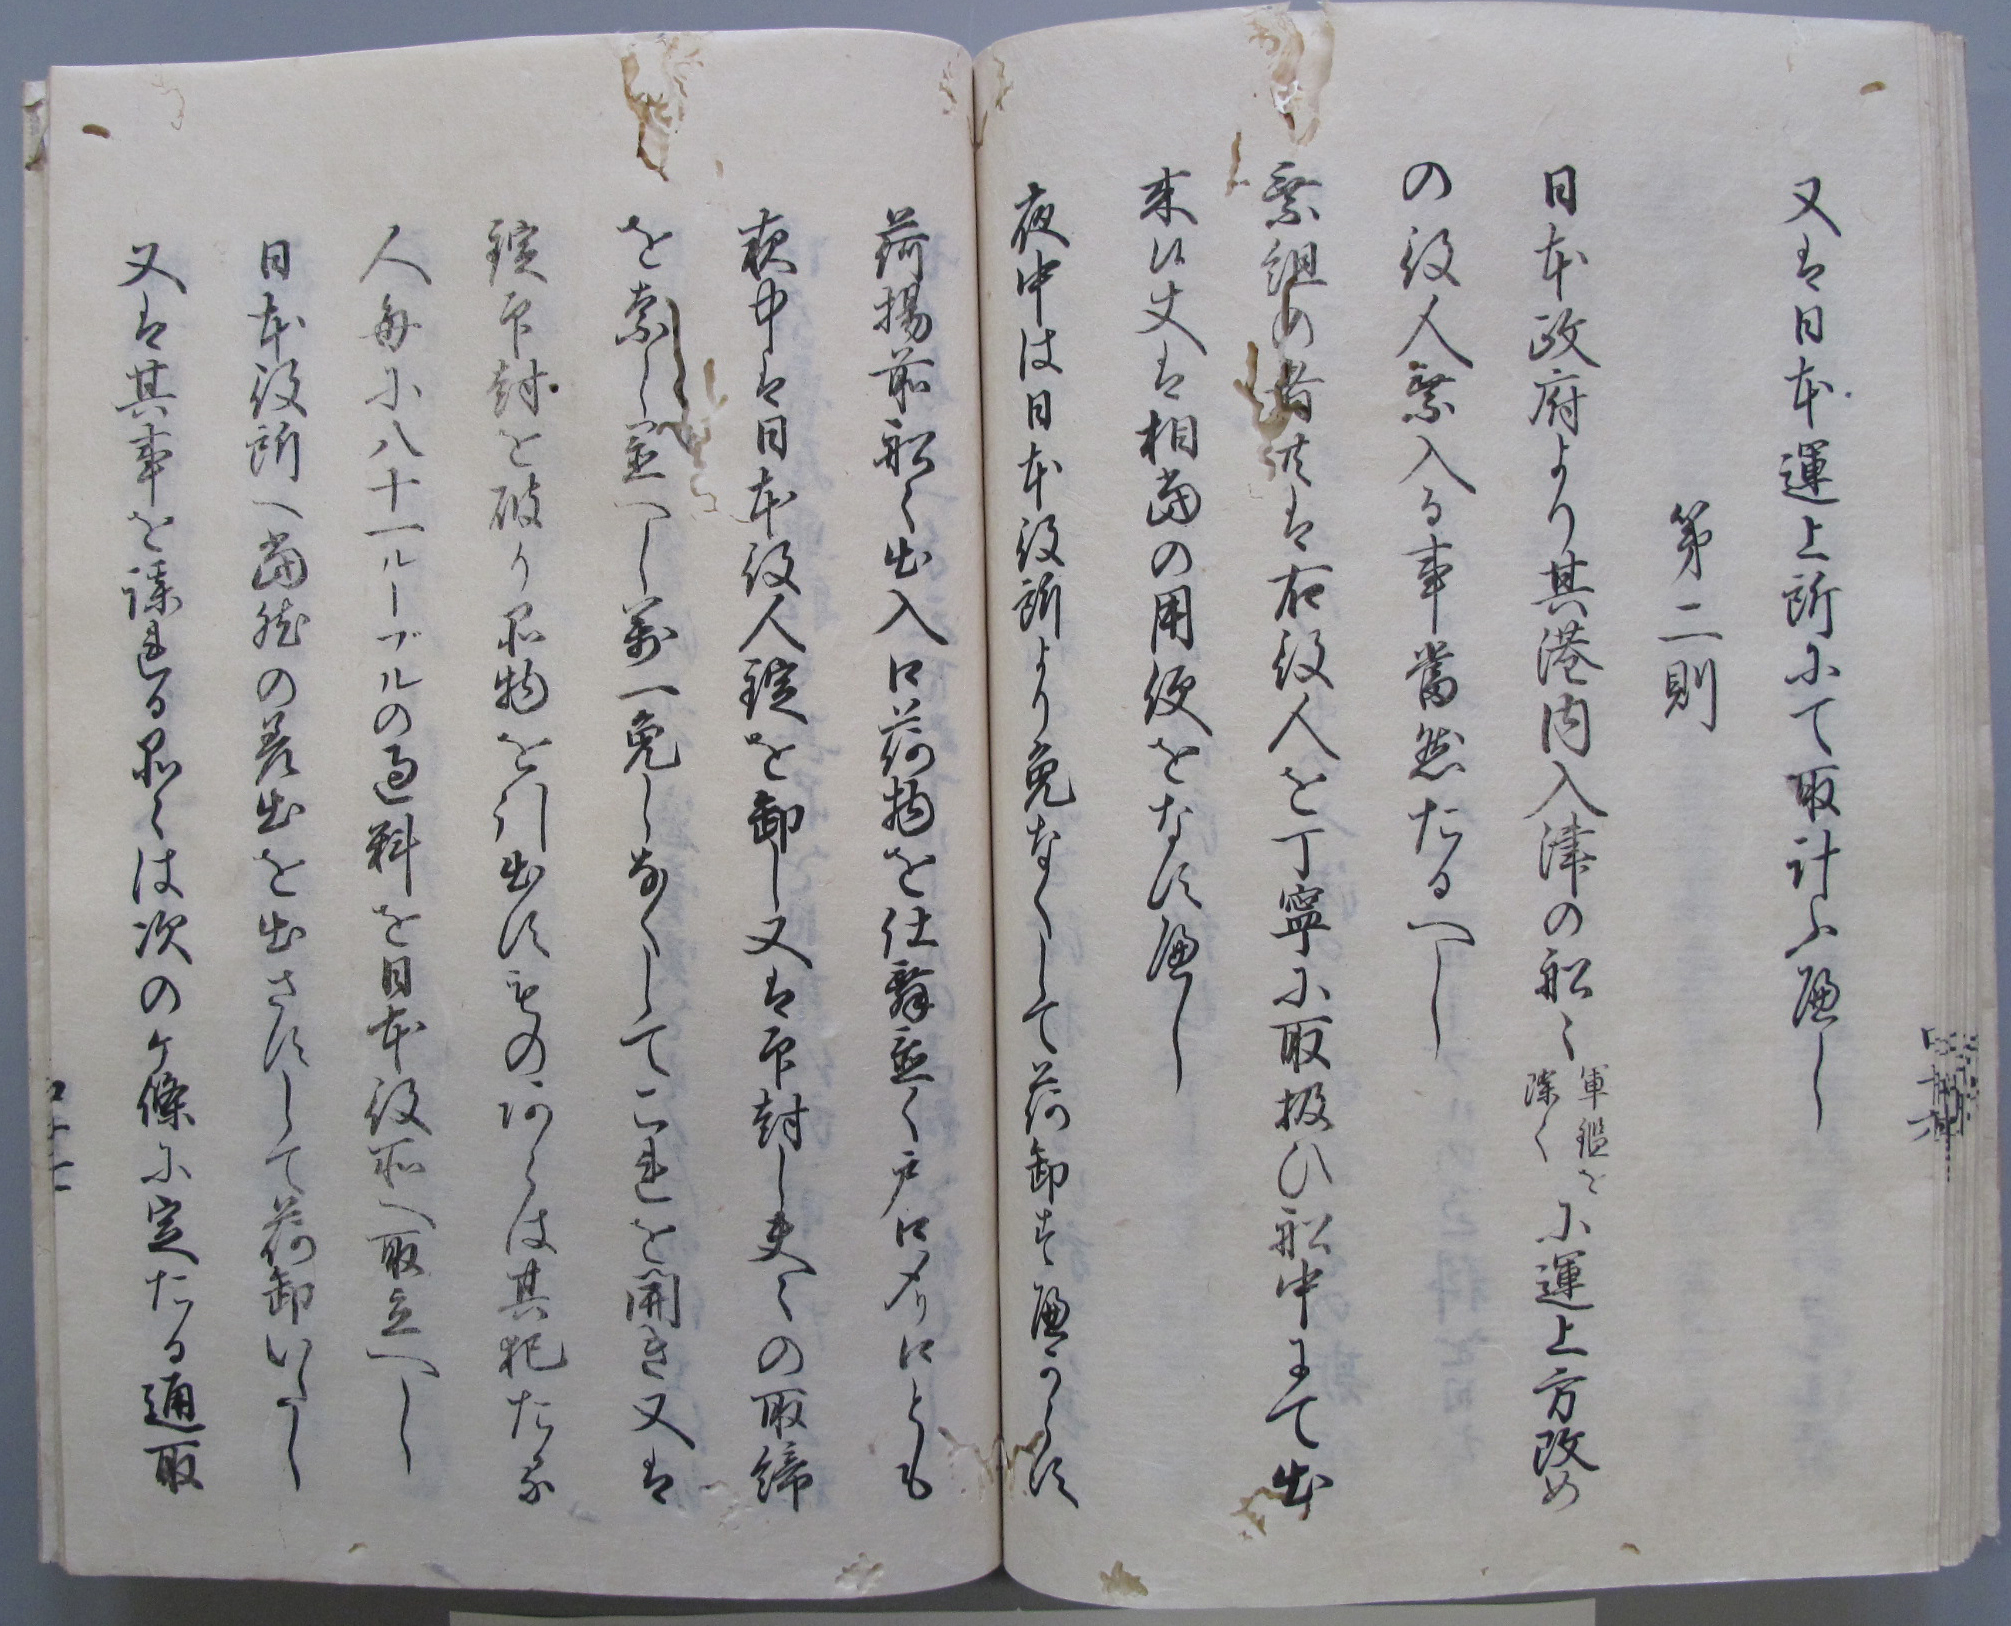 又は日本運上所にて取計ふ廉し
第二則
日本政府より其港内入津の船々軍艦を除くに運上方改め
の役人乗入る事當然たるへし
乗組の者共は右役人を丁寧に取扱ひ船中にて出
来候丈は相當の用便をなす廉し
夜中は日本役所より免なくして荷卸す廉からす
荷揚前船々出入口荷物を仕舞置く戸口〆り口とも
夜中は日本役人錠を卸し又は印封し夫々の取締
を為し置へし萬一免しなくしてこれを開き又は
錠印封を破り品物を引出すものあらは其犯たる
人毎に八十一ルーブルの過料を日本役所へ取立へし
日本役所へ當然の差出を出さすして荷卸いたし
又は其事を謀れる品々は次のケ條に定たる通取